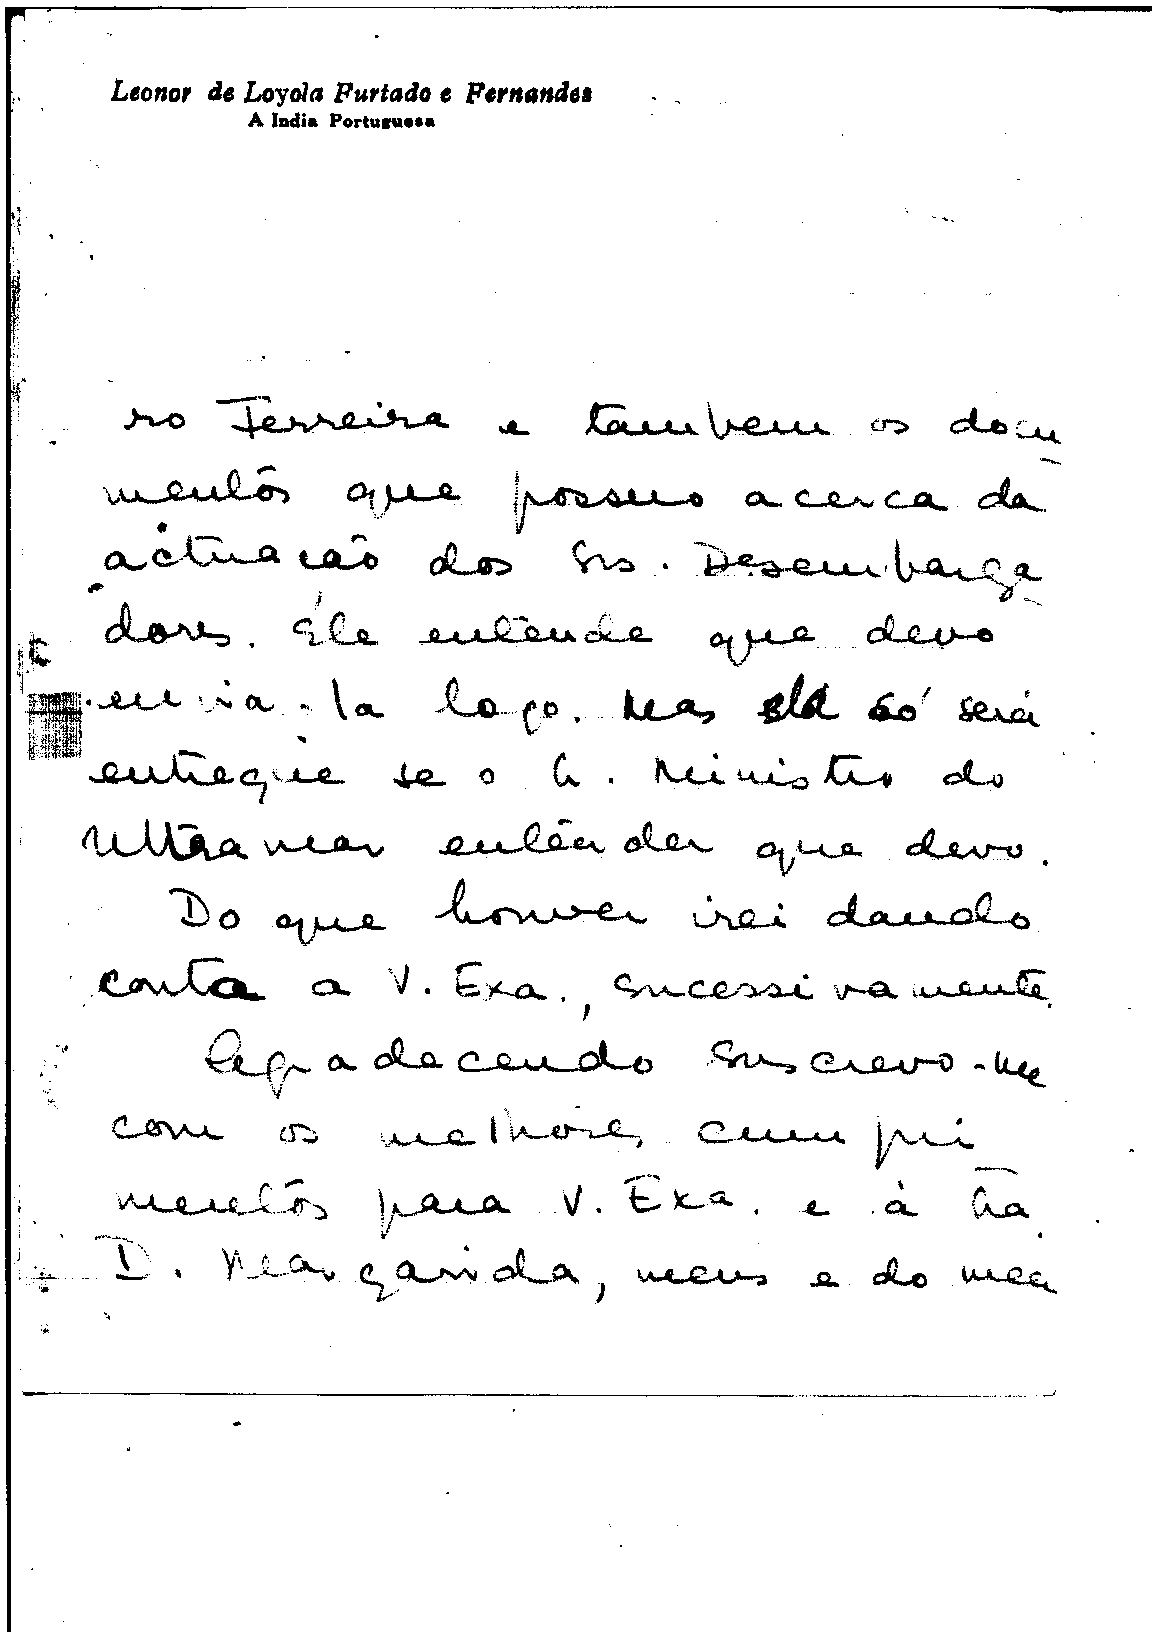 Leonor de Loyola Furtado e Fernandes
A India Portuguesa
ro Ferreira e tambem os docu
mentos que possuo acerca da
actuacão dos Srs. Desembarga
dores. Ele entende que devo
envia-la logo. Mas ela só será
entregue se o Sr. Ministro do
Ultramar entender que devo.
Do que houver irei dando
conta a V. Exa., sucessivamente.
Agradecendo suscrevo-me
com os melhores cumpri
mentos para V. Exa. e à Sra.
D. Margarida, meus e do meu